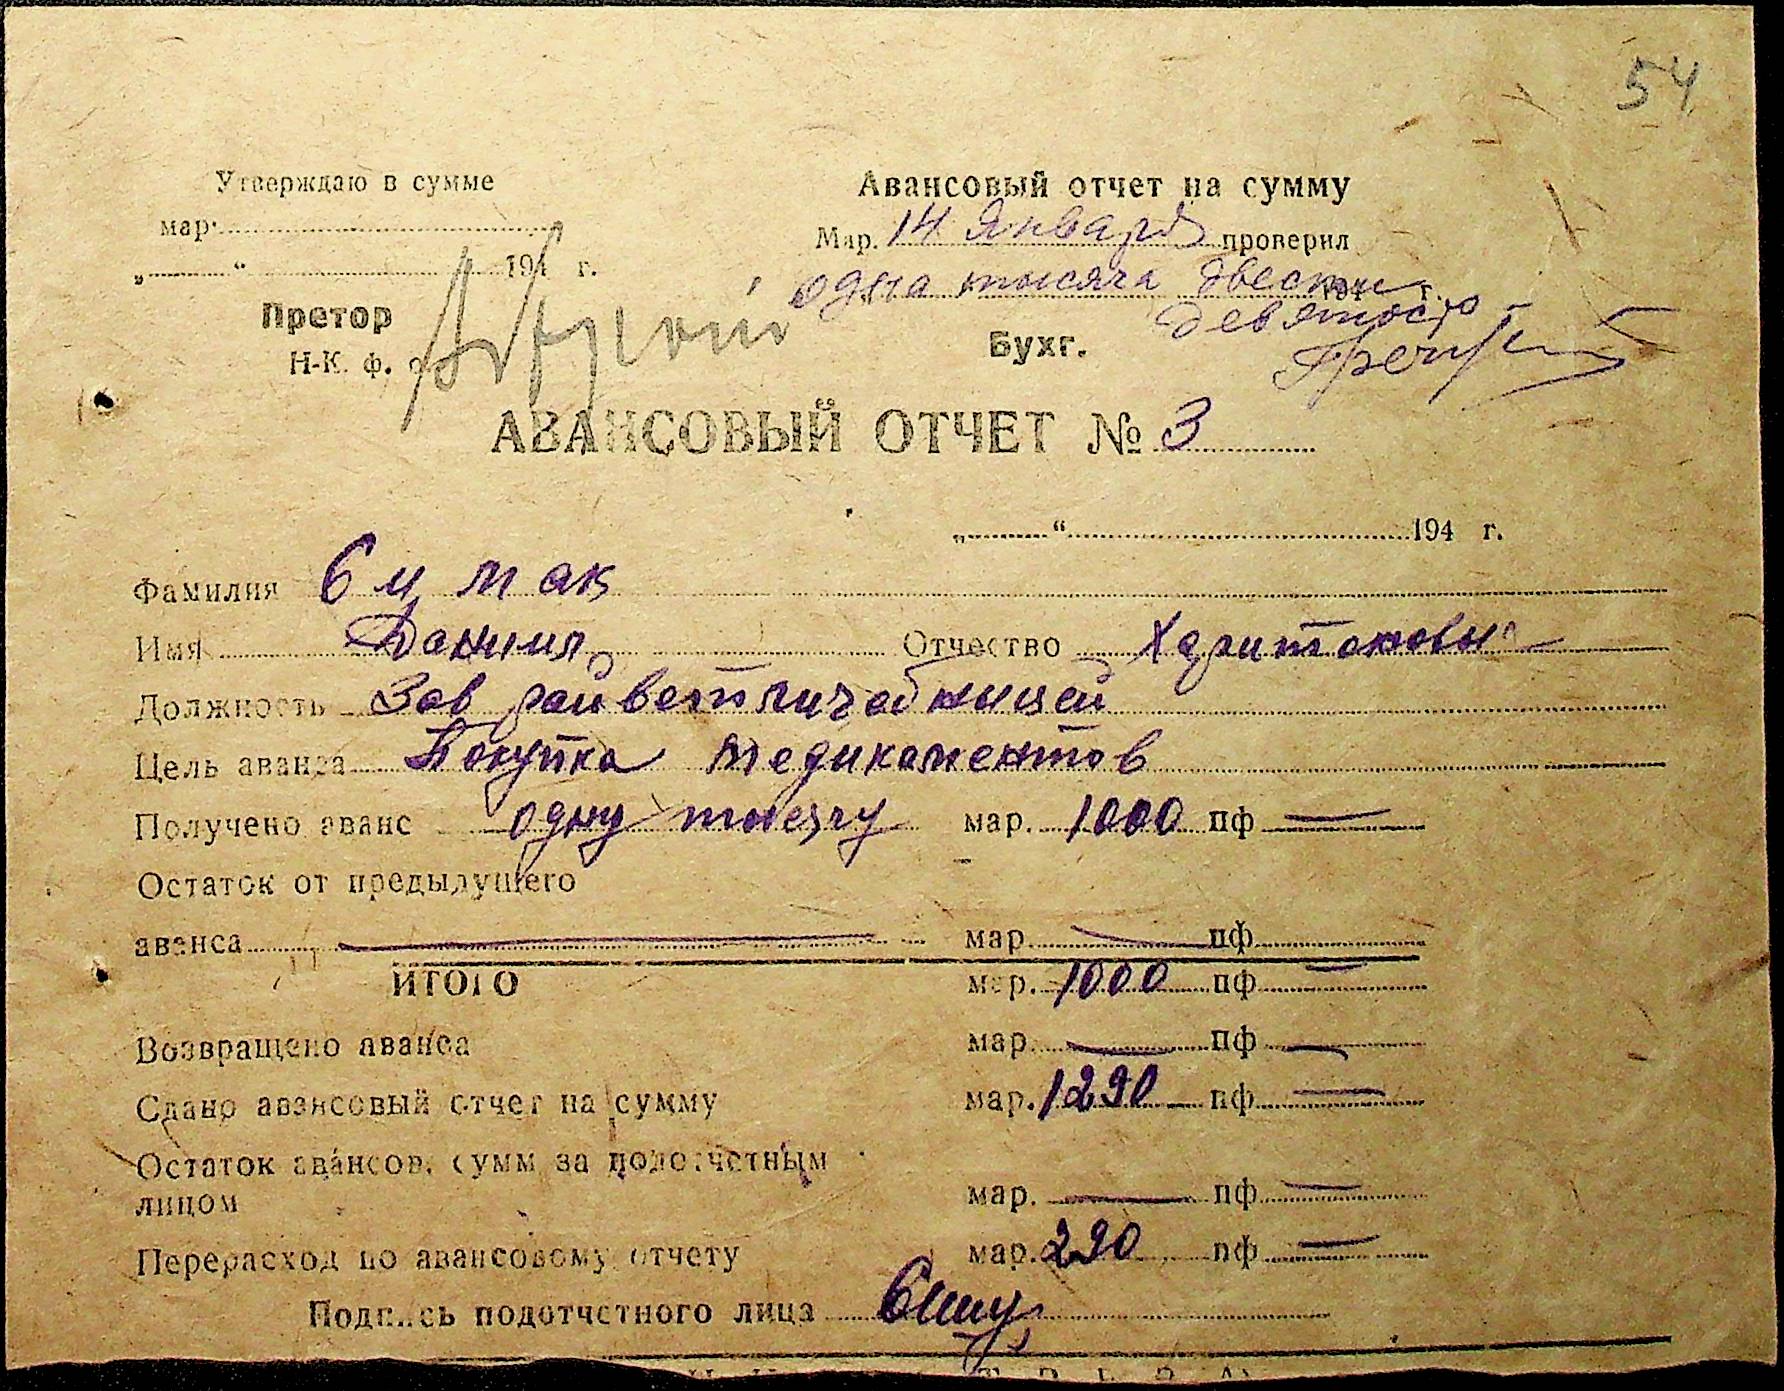 54
Утверждаю в сумме
мар.
„ “ 194 г.
Претор
Н-К. ф. о
Авансовый отчет на сумму
Мар. 14 Января проверил
одна тысяча двести
194 г.
девяносто
Бухг.
АВАНСОВЫЙ ОТЧЕТ № 3
„ “ 194 г.
Фамилия
Имя Даниил Отчество Харитонович
Должность Зав райветличебницей
Цель аванса Покупка медикаментов
Получено аванс одну тысячу мар. 1000 пф —
Остаток от предыдущего
аванса — мар. — пф
ИТОГО мар. 1000 пф —
Возвращено аванса мар. — пф —
Сдано авансовый отчет на сумму мар. 1290 пф —
Остаток авансов. сумм за подотчетным
лицом мар. — пф —
Перерасход по авансовому отчету мар. 290 пф —
Подпись подотчетного лица